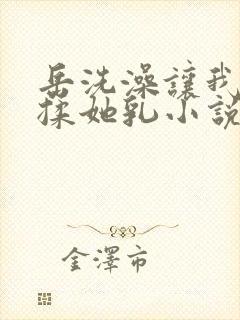 岳洗澡讓我
揉她乳小說
金澤市